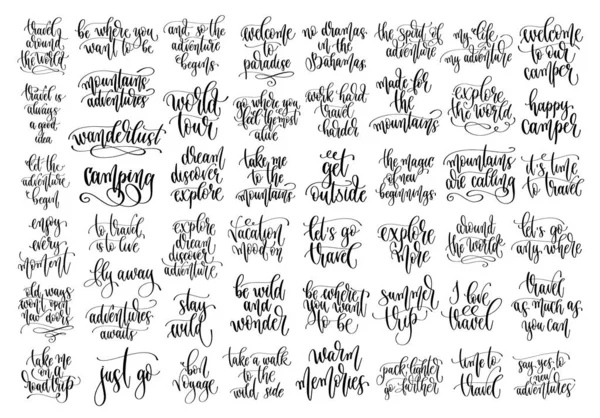 travel
around
the world
be where you
want to be
and so the
adventure
begins
welcome
to
paradise
no dramas
in the
Bahamas
the spirit of
adventure
my life
my adventure
welcome
to our
camper
travel is
always
a good
idea
mountains
adventures
wanderlust
world
tour
go where you
feel the most
alive
work hard
travel
harder
made for
the
mountains
explore
the world
happy
camper
let the
adventure
begin
camping
dream
discover
explore
take me
to the
mountains
get
outside
the magic
of new
beginnings
mountains
are calling
it's time
to travel
enjoy
every
moment
to travel
is to live
fly away
explore
dream
discover
adventure
vacation
mood on
let's go
travel
explore
more
around
the world
let's go
anywhere
old ways
won't open
new doors
adventures
awaits
stay
wild
be wild
and
wonder
be where
you want
to be
summer
trip
I love
travel
travel
as much as
you can
take me
on a
road trip
just go
bon
voyage
take a walk
to the
wild side
warm
memories
pack lighter
go farther
time to
travel
say yes to
new
adventures